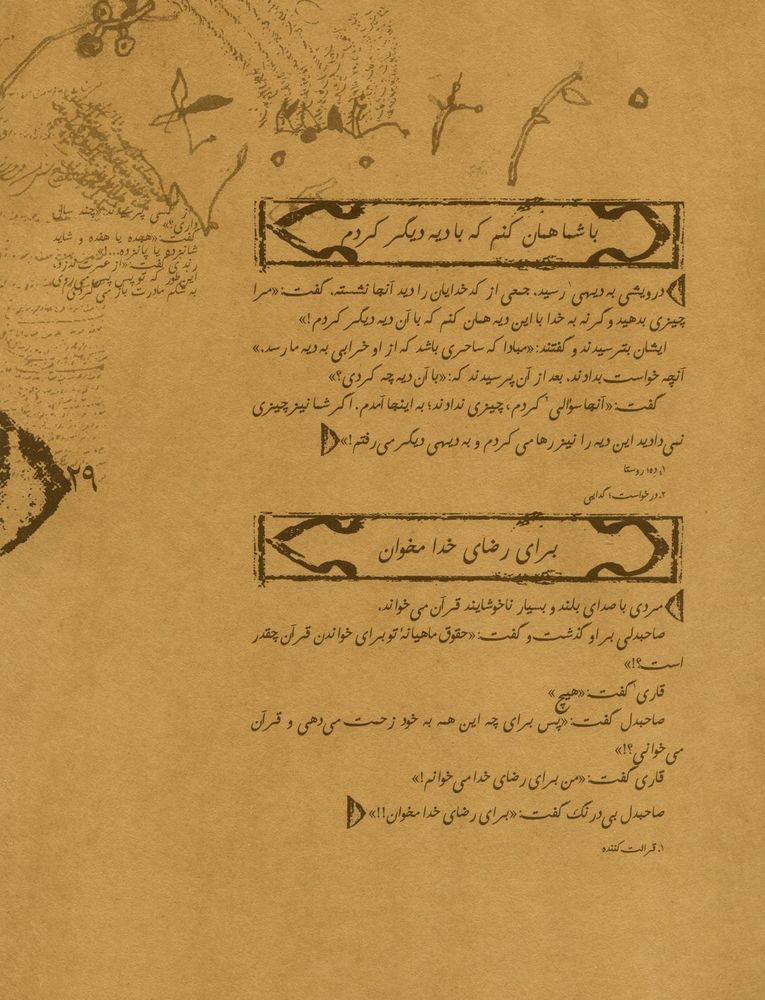 با شما همان کنم که با دیه دیگر کردم
درویشی به دیهی۱ رسید. جمعی از کدخدایان را دید آنجا نشسته. گفت: «مرا
چیزی بدهید و گرنه به خدا با این دیه همان کنم که با آن دیه دیگر کردم!»
ایشان بترسیدند و گفتند: «مبادا که ساحری باشد که از او خرابی به دیه ما رسد.»
آنچه خواست بدادند. بعد از آن پرسیدند که: «با آن دیه چه کردی؟»
گفت: «آنجا سؤالی۲ کردم، چیزی ندادند؛ به اینجا آمدم. اگر شما نیز چیزی
نمی‌دادید این دیه را نیز رها می کردم و به دیهی دیگر می‌رفتم!»
۱. ده؛ روستا
۲. درخواست؛ گدایی
برای رضای خدا مخوان
مردی با صدای بلند و بسیار ناخوشایند قرآن می‌خواند.
صاحبدلی بر او گذشت و گفت: «حقوق ماهیانهٔ تو برای خواندن قرآن چقدر
است؟!»
قاری۱ گفت: «هیچ»
صاحبدل گفت: «پس برای چه این همه به خود زحمت می‌دهی و قرآن
می‌خوانی؟!»
قاری گفت: «من برای رضای خدا می‌خوانم!»
صاحبدل بی‌درنگ گفت: «برای رضای خدا مخوان!!»
۱. قرائت کننده
از کسی پرسیدند: «چند سال
داری؟»
گفت: «هجده یا هفده و شاید
شانزده یا پانزده...!»
رندی گفت: «از عمرت دزدی،
این‌طور که تو پس پس می‌روی
به شکم مادرت باز می‌گردی!»
۲۹